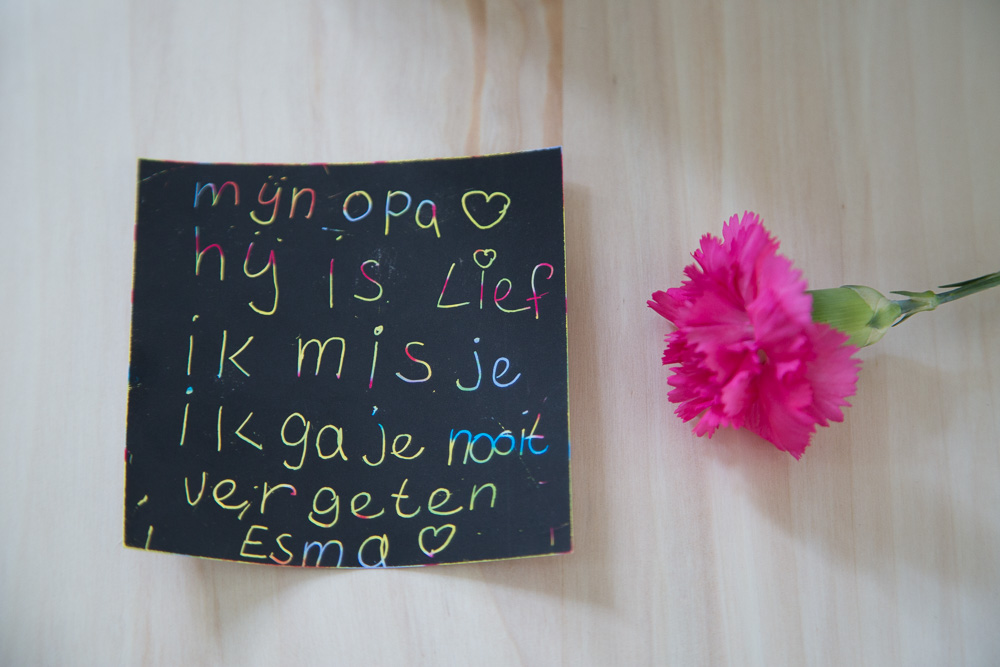 mijn opa ♡
hij is Lief
ik mis je
ik ga je nooit
vergeten
Esma ♡